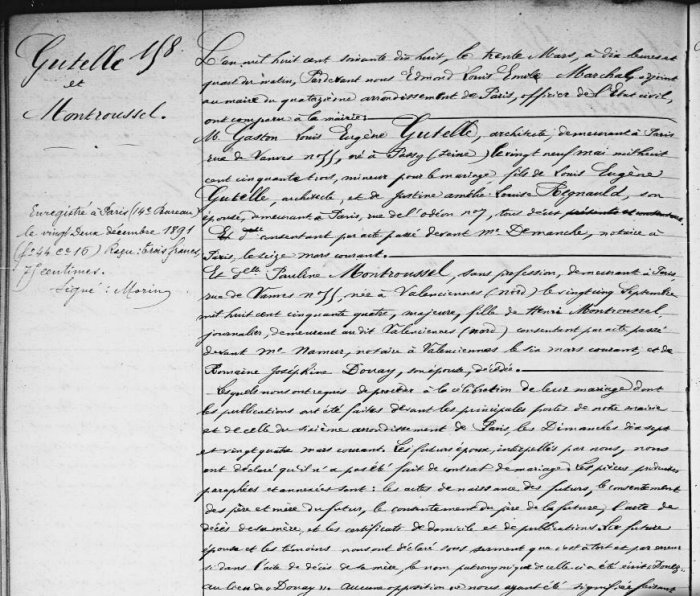 Gutelle 158
et
Montroussel.
Enregistré à Paris (14e Bureau)
le vingt deux décembre 1891
(fo 44 Co 16) Reçu: trois francs
75 centimes.
Signé: Morin
L'an mil huit cent soixante dix huit, le trente Mars, à dix heures et
quart du matin, Pardevant nous Edmond Louis Emile Marchal, adjoint
au maire du quatorzième arrondissement de Paris, officier de l'Etat civil,
ont comparu à la mairie:
M. Gaston Louis Eugène Gutelle, architecte demeurant à Paris
rue de Vanves no 55, né à Passy (Seine) le vingt neuf mai mil huit
cent cinquante trois, mineur pour le mariage fils de Louis Eugène
Gutelle, architecte, et de Justine Louise Regnauld, son
épouse, demeurant à Paris, rue de l'odéon no 7, tous deux
consentant par acte passé devant Me Demanche, notaire à
Paris, le seize mars courant.
Et Dlle Pauline Montroussel, sans profession, demeurant à Paris
rue de Vanves no 55, née à Valenciennes (nord) le vingt cinq Septembre
mil huit cent cinquante quatre, majeure, fille de Henri Montroussel,
journalier, demeurant audit Valenciennes (nord) consentant par acte passé
devant Me Namur, notaire à Valenciennes le six mars courant, et de
Romaine Joséphine Douay, son épouse, décédée.
Lesquels nous ont requis de procéder à la célébration de leur mariage dont
les publications ont été faites devant les principales portes de notre mairie
et de celle du sixième arrondissement de Paris, les Dimanches dix sept
et vingt quatre mars courant. Les futurs époux, interpellés par nous, nous
ont déclaré qu'il n'a pas été fait de contrat de mariage. Les pièces produites
paraphées et annexées sont: les actes de naissance des futurs, le consentement
des père et mère du futur, le consentement du père de la future, l'acte de
décès de sa mère, et les certificats de domicile et de publications. Les futurs
époux et les témoins nous ont déclaré sous serment que c'est à tort et par erreur
si dans l'acte de décès de la mère, le nom patronymique de celle ci a été écrit
au lieu de "Douay". aucune opposition ne nous ayant été signifiée faisant